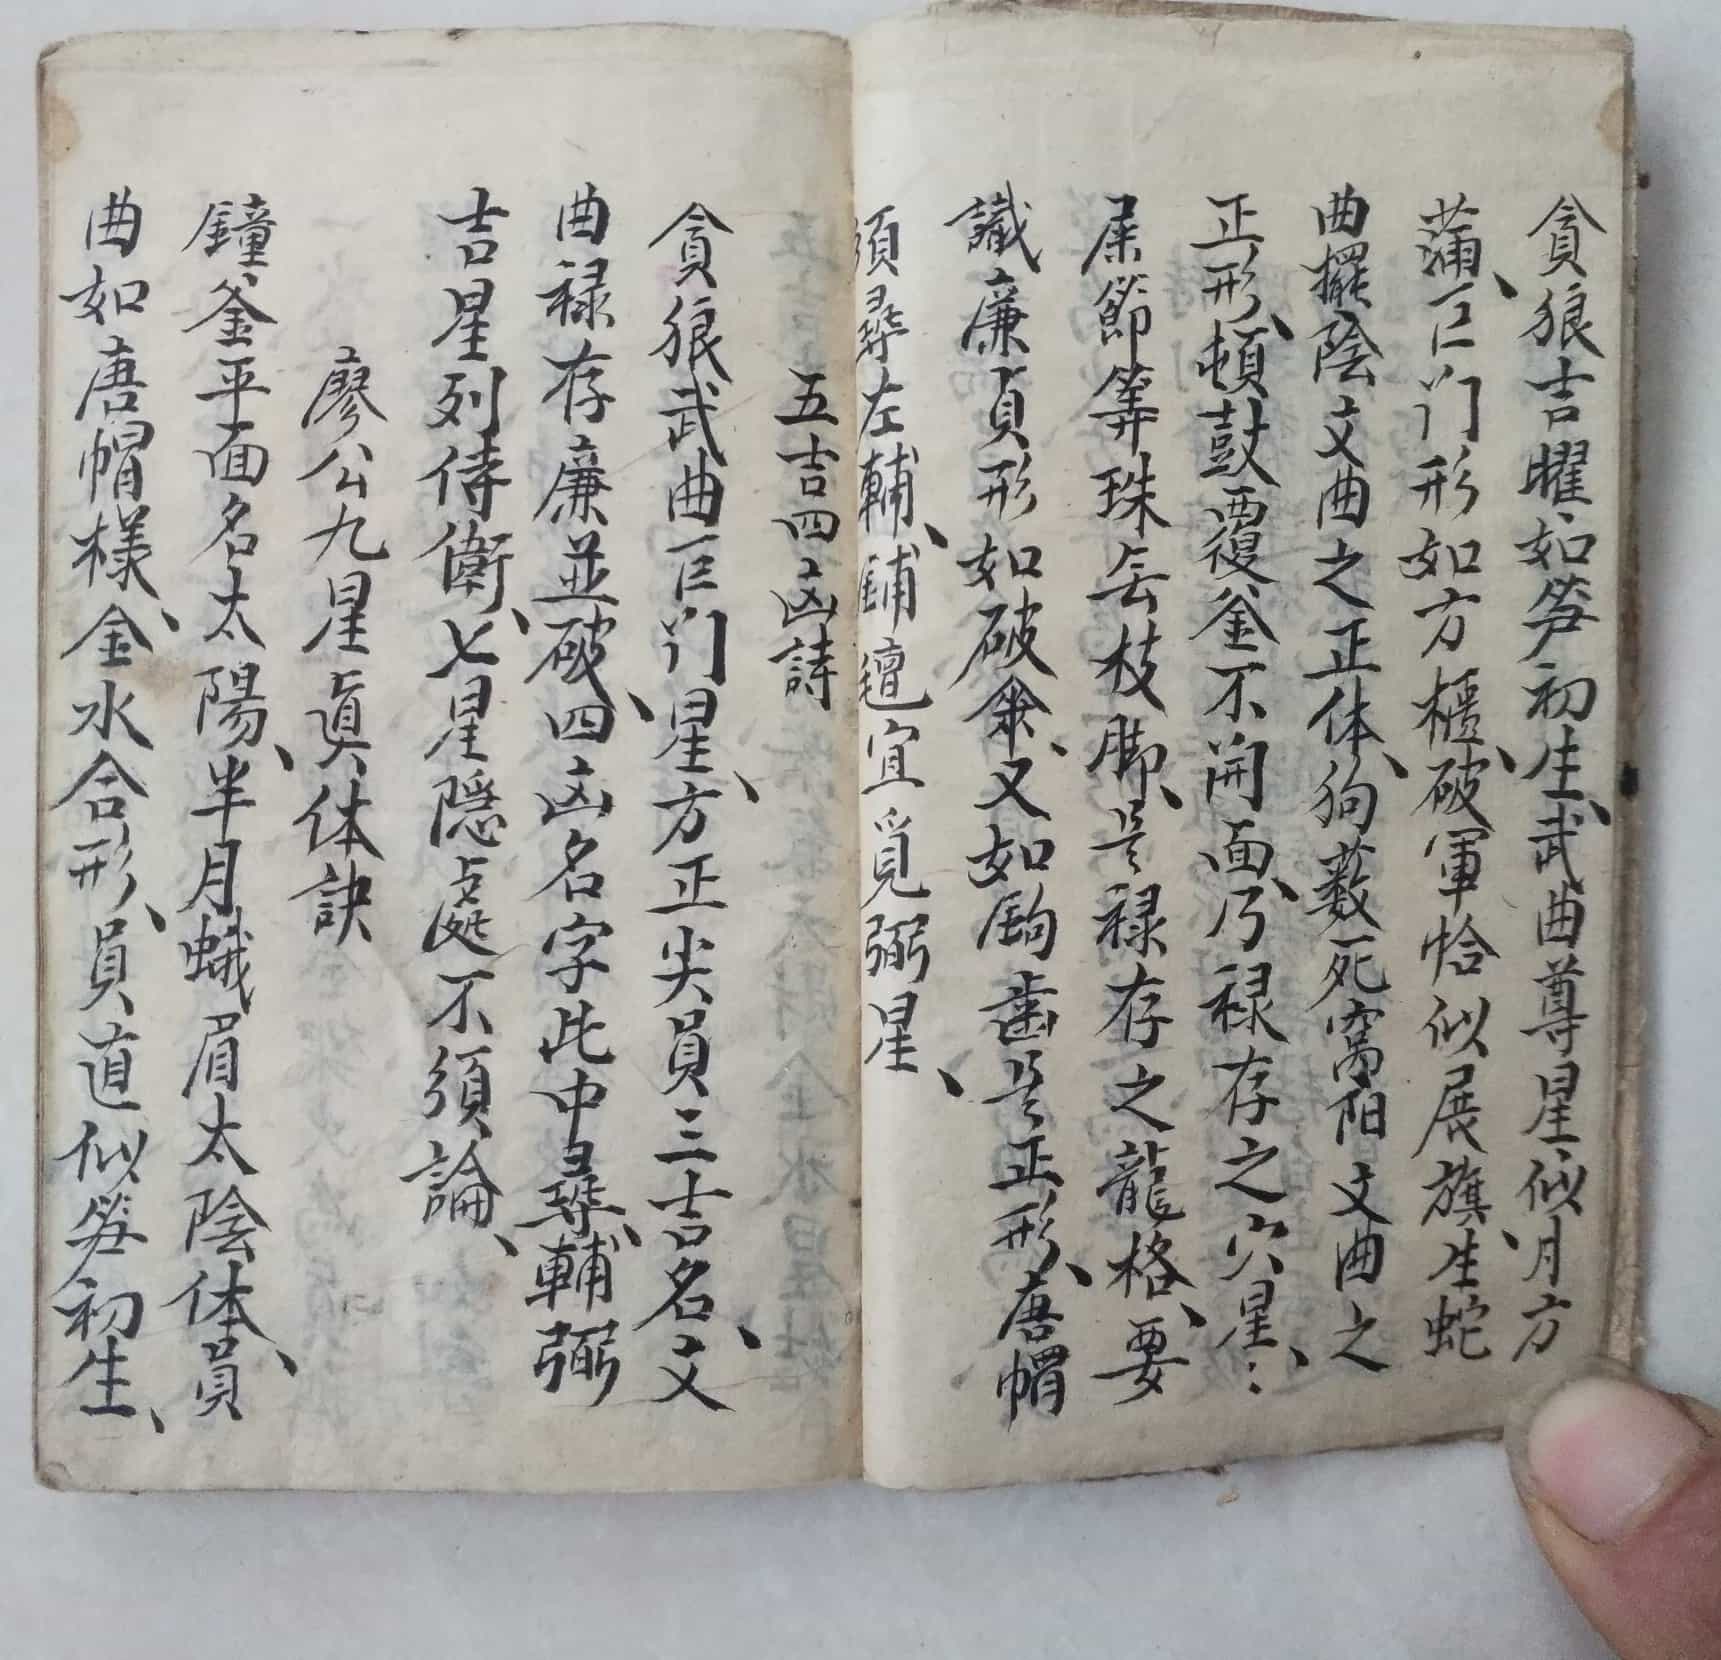 貪狼吉曜如笋初生、武曲尊星似月方
蒲、巨门形如方櫃、破軍恰似展旗、生蛇
曲擺陰文曲之正体、狗薮死窩阳文曲之
正形、頓鼓覆釜不開面、乃禄存之穴星、
屎節筭珠无枝脚、是禄存之龍格、要
識廉貞形如破傘、又如鋤齒是正形、唐帽
須尋左輔、鋪氊宜覓弼星、
五吉四凶詩
貪狼武曲巨门星、方正尖員三吉名、文
曲禄存廉並破、四凶名字此中尋、輔弼
吉星列侍衛、七星隱處不須論、
廖公九星眞体訣
鐘釜平面名太陽、半月蛾眉太陰体、員
曲如唐帽樣、金水合形、員直似笋初生、